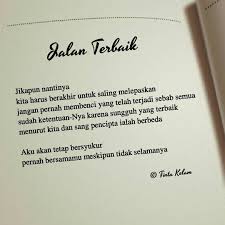 Jalan Terbaik
Jikapun nantinya
kita harus berakhir untuk saling melepaskan
jangan pernah membenci yang telah terjadi sebab semua
sudah ketentuan-Nya karena sungguh yang terbaik
menurut kita dan sang pencipta ialah berbeda
Aku akan tetap bersyukur
pernah bersamamu meskipun tidak selamanya
© Tinta Kelam